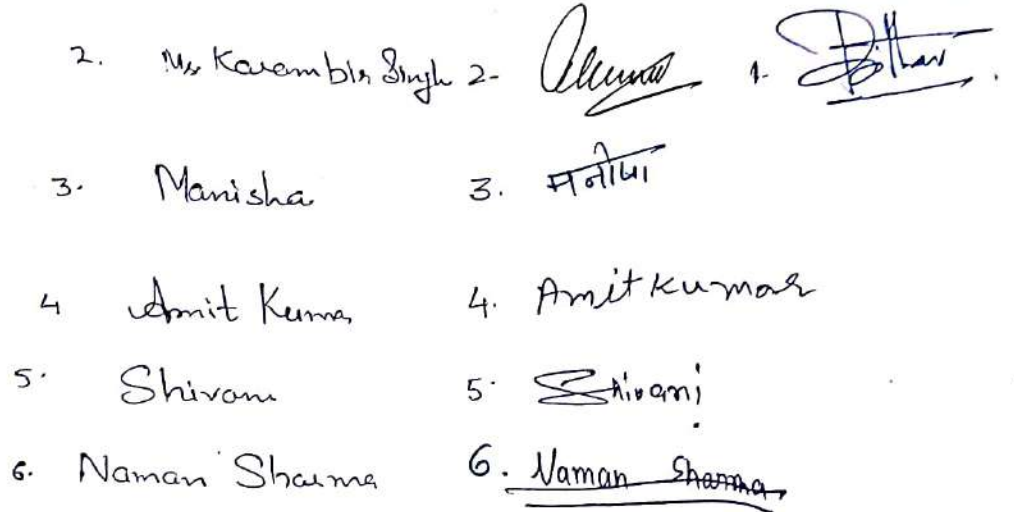 2. Ms Karambir Singh 2- 1-
3. Manisha 3. मनीषा
4 Amit Kumar 4. Amit Kumar
5. Shivani 5. Shivani
6. Naman Sharma 6. Naman Sharma